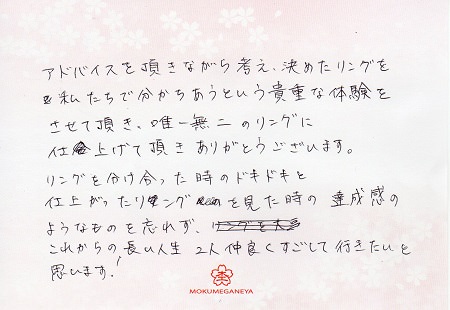 アドバイスを頂きながら考え、決めたリングを
私たちで分かちあうという貴重な体験を
させて頂き、唯一無二のリングに
仕上げて頂きありがとうございます。
リングを分け合った時のドキドキと
仕上がったリングを見た時の達成感の
ようなものを忘れず、
これからの長い人生 2人仲良くすごして行きたいと
思います!
MOKUMEGANEYA